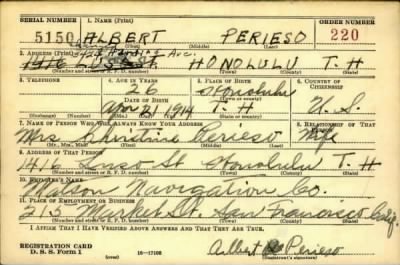 SERIAL NUMBER 1. NAME (Print) ORDER NUMBER
5150 ALBERT PERIESO 220
(First) (Middle) (Last)
2. ADDRESS (Print)
HONOLULU T. H
(Number and street or R. F. D. number) (Town) (County) (State)
3. TELEPHONE 4. AGE IN YEARS 5. PLACE OF BIRTH 6. COUNTRY OF CITIZENSHIP
26 Honolulu
(Town or county)
DATE OF BIRTH
Apr 21 1914 T. H U. S.
(Mo.) (Day) (Yr.) (State or country)
7. NAME OF PERSON WHO WILL ALWAYS KNOW YOUR ADDRESS 8. RELATIONSHIP OF THAT PERSON
Mrs. Christine Perieso Wife
(Mr., Mrs., Miss) (First) (Middle) (Last)
9. ADDRESS OF THAT PERSON
1416 St Honolulu T. H
(Number and street or R. F. D. number) (Town) (County) (State)
10. EMPLOYER'S NAME
Matson Navigation Co.
11. PLACE OF EMPLOYMENT OR BUSINESS
215 Market St. San Francisco Calif.
(Number and street or R. F. D. number) (Town) (County) (State)
I AFFIRM THAT I HAVE VERIFIED ABOVE ANSWERS AND THAT THEY ARE TRUE.
REGISTRATION CARD
D. S. S. Form 1 16-17105 Albert Perieso
(Registrant's signature)